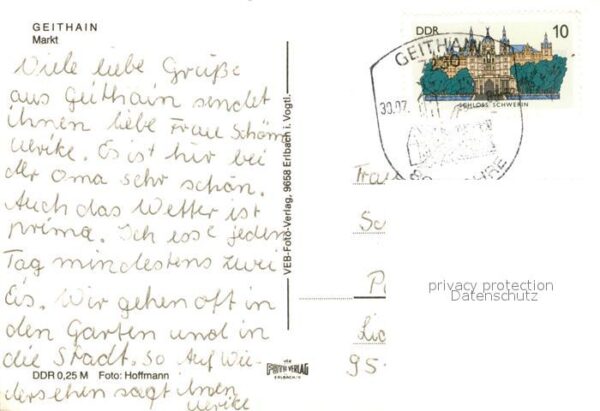 GEITHAIN
Markt
Viele liebe Grüße
aus Geithain sendet
ihnen liebe Frau Schöm
Ulrike. Es ist hir bei
der Oma sehr schön.
Auch das Wetter ist
prima. Ich esse jeden
Tag mindestens zwei
Eis. Wir gehen oft in
den Garten und in
die Stadt. So Auf Wie-
dersehen sagt Ihnen
Ulrike
DDR 0,25 M Foto: Hoffmann
VEB-Foto-Verlag, 9658 Erlbach i. Vogtl.
VEB
FOTO VERLAG
ERLBACH
DDR 10
SCHLOSS SCHWERIN
GEITHAIN
30.07.
800 JAHRE
Frau
Sc
P
Lic
95
privacy protection
Datenschutz